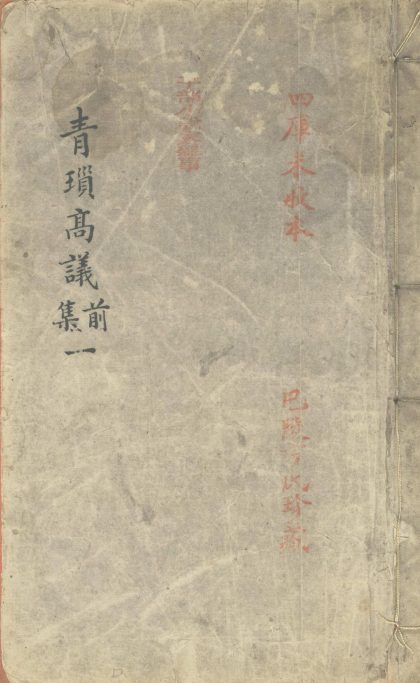 四庫未收本
巴陵方氏珍藏
青瑣髙議前集一